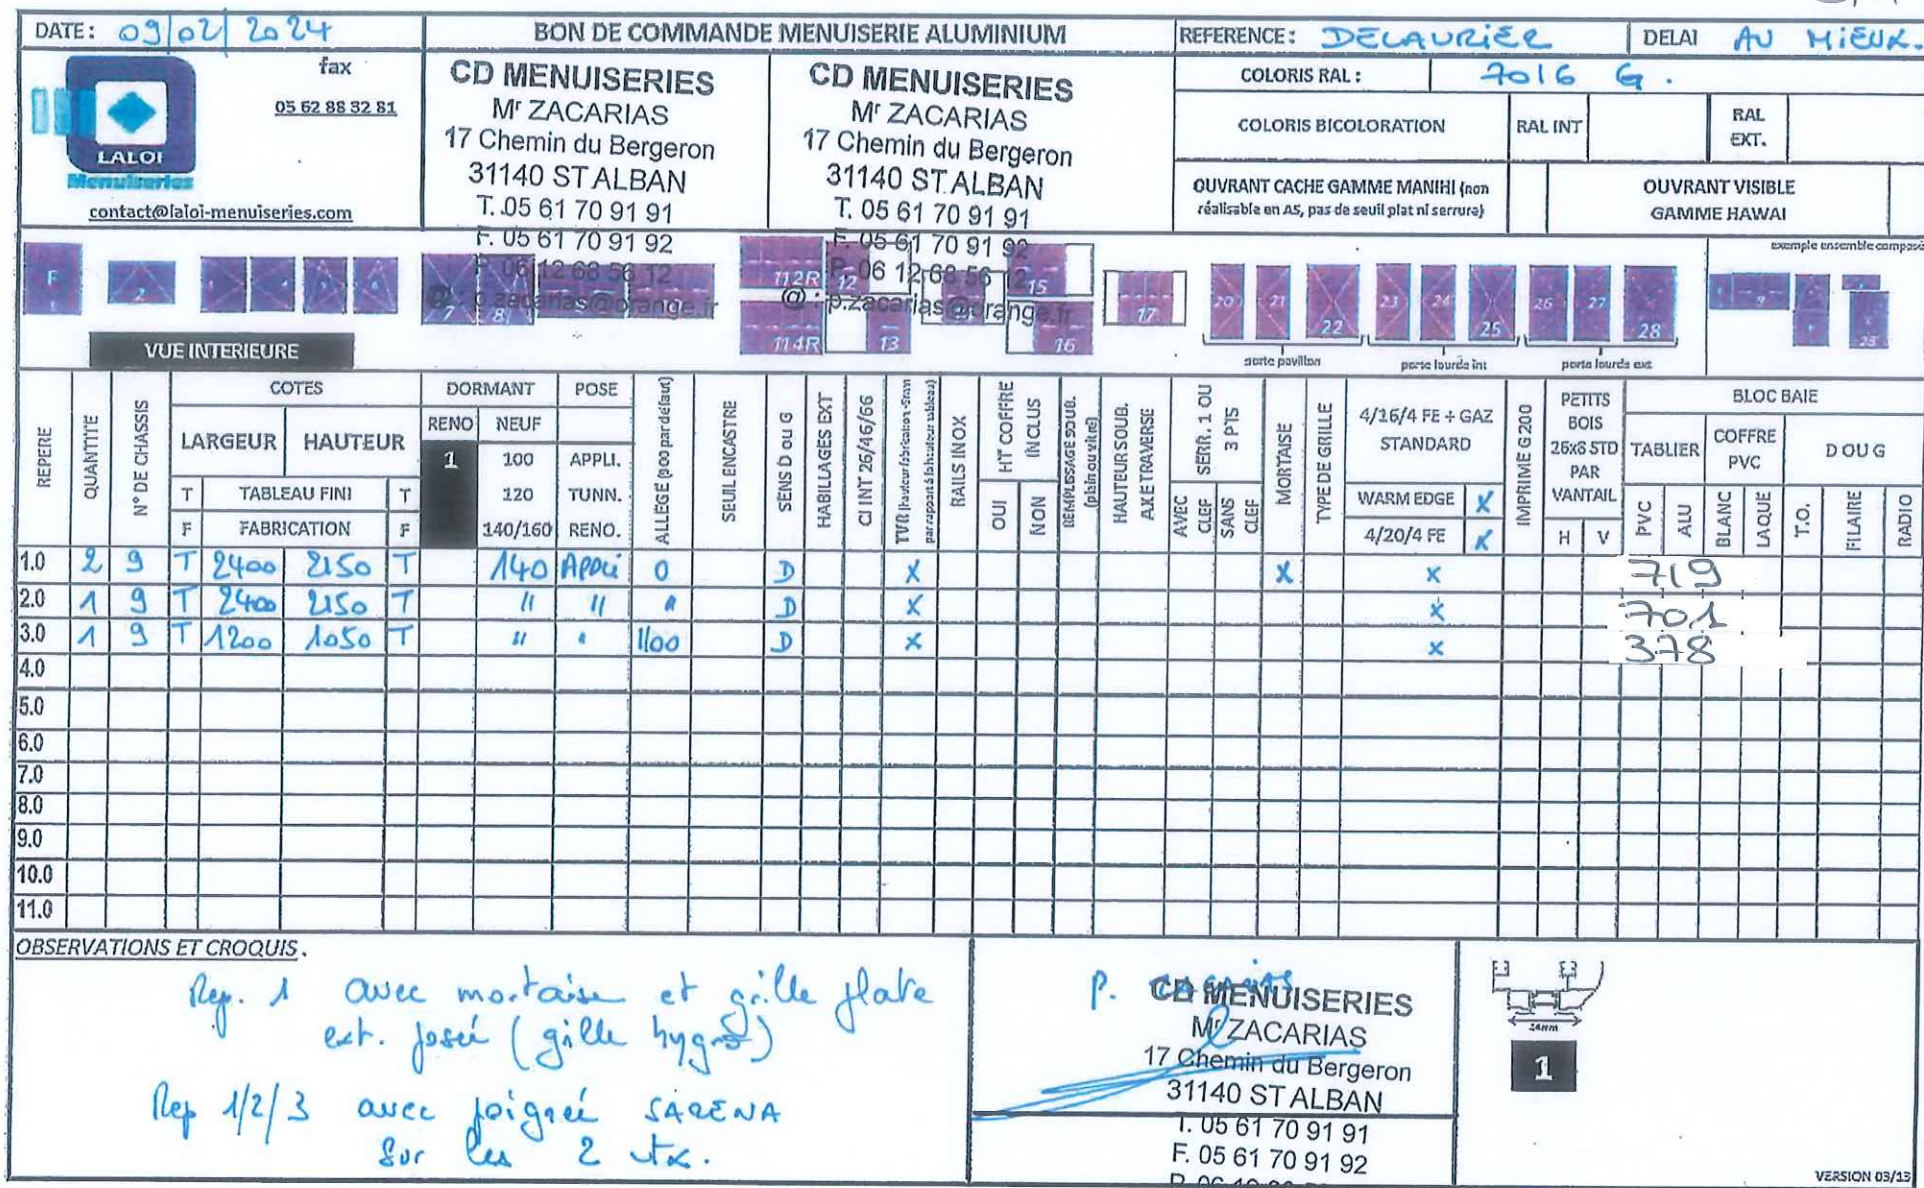 DATE: 09/02/2024
BON DE COMMANDE MENUISERIE ALUMINIUM
REFERENCE: DELAURIER
DELAI AU MIEUX.
fax
05 62 88 32 81
LALOI
Menuiseries
contact@laloi-menuiseries.com
CD MENUISERIES
Mr ZACARIAS
17 Chemin du Bergeron
31140 ST ALBAN
T. 05 61 70 91 91
F. 05 61 70 91 92
P. 06 12 68 56 12
@ : p.zacarias@orange.fr
CD MENUISERIES
Mr ZACARIAS
17 Chemin du Bergeron
31140 ST ALBAN
T. 05 61 70 91 91
F. 05 61 70 91 92
P. 06 12 68 56 12
@ : p.zacarias@orange.fr
COLORIS RAL: 7016 G.
COLORIS BICOLORATION RAL INT RAL EXT.
OUVRANT CACHE GAMME MANIHI (non réalisable en AS, pas de seuil plat ni serrure)
OUVRANT VISIBLE GAMME HAWAI
exemple ensemble composé
F 2 7 8 112R 114R 12 13 15 16 17 20 21 22 23 24 25 26 27 28
porte pavillon porte lourde int porte lourde ext
VUE INTERIEURE
REPERE
QUANTITE
N° DE CHASSIS
COTES
LARGEUR HAUTEUR
T TABLEAU FINI T
F FABRICATION F
DORMANT
RENO NEUF
1 100
120
140/160
POSE
APPLI.
TUNN.
RENO.
ALLEGE (900 par défaut)
SEUIL ENCASTRE
SENS D ou G
HABILLAGES EXT
CI INT 26/46/66
TVR (hauteur fabrication -5mm par rapport à la hauteur tableau)
RAILS INOX
HT COFFRE INCLUS
OUI NON
REMPLISSAGE SOUB. (plain ou vitré)
HAUTEUR SOUB. AXE TRAVERSE
SERR. 1 OU 3 PTS
AVEC CLEF
SANS CLEF
MORTAISE
TYPE DE GRILLE
4/16/4 FE + GAZ STANDARD
WARM EDGE X
4/20/4 FE X
IMPRIME G 200
PETITS BOIS 26x8 STD PAR VANTAIL
H V
BLOC BAIE
TABLIER
PVC ALU
COFFRE PVC
BLANC LAQUE
D OU G
T.O. FILAIRE RADIO
1.0 2 9 T 2400 2150 T 140 APPLI 0 D X X X 719
2.0 1 9 T 2400 2150 T " " " D X X 701
3.0 1 9 T 1200 1050 T " " 1100 D X X 378
4.0
5.0
6.0
7.0
8.0
9.0
10.0
11.0
OBSERVATIONS ET CROQUIS.
Rep. 1 avec mortaise et grille plate
ext. posée (grille hygro)
Rep 1/2/3 avec poignée SARENA
Sur les 2 vtx.
P. ZACARIAS
CD MENUISERIES
Mr ZACARIAS
17 Chemin du Bergeron
31140 ST ALBAN
T. 05 61 70 91 91
F. 05 61 70 91 92
1
VERSION 03/13